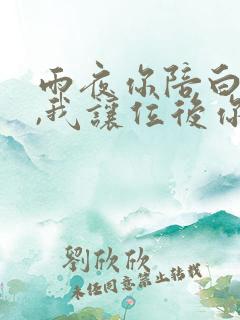 雨夜你陪白
,我讓位後你
劉欣欣
未經同意禁止轉載